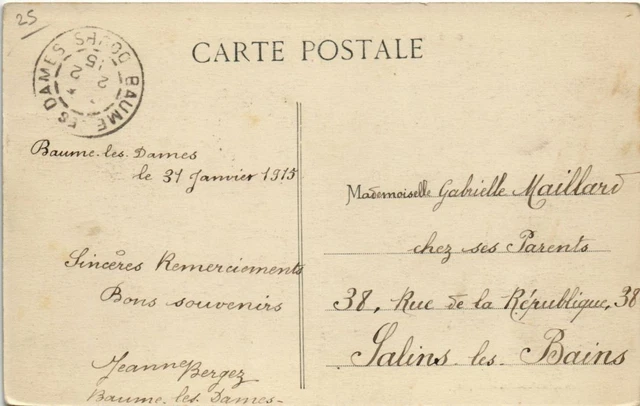 25
CARTE POSTALE
BAUME-LES-DAMES DOUBS
15
2
2
Baume-les-Dames
le 31 Janvier 1915
Sincères Remerciements
Bons souvenirs
Jeanne Bergez
Baume-les-Dames-
Mademoiselle Gabrielle Maillard
chez ses Parents
38, Rue de la République, 38
Salins-les-Bains